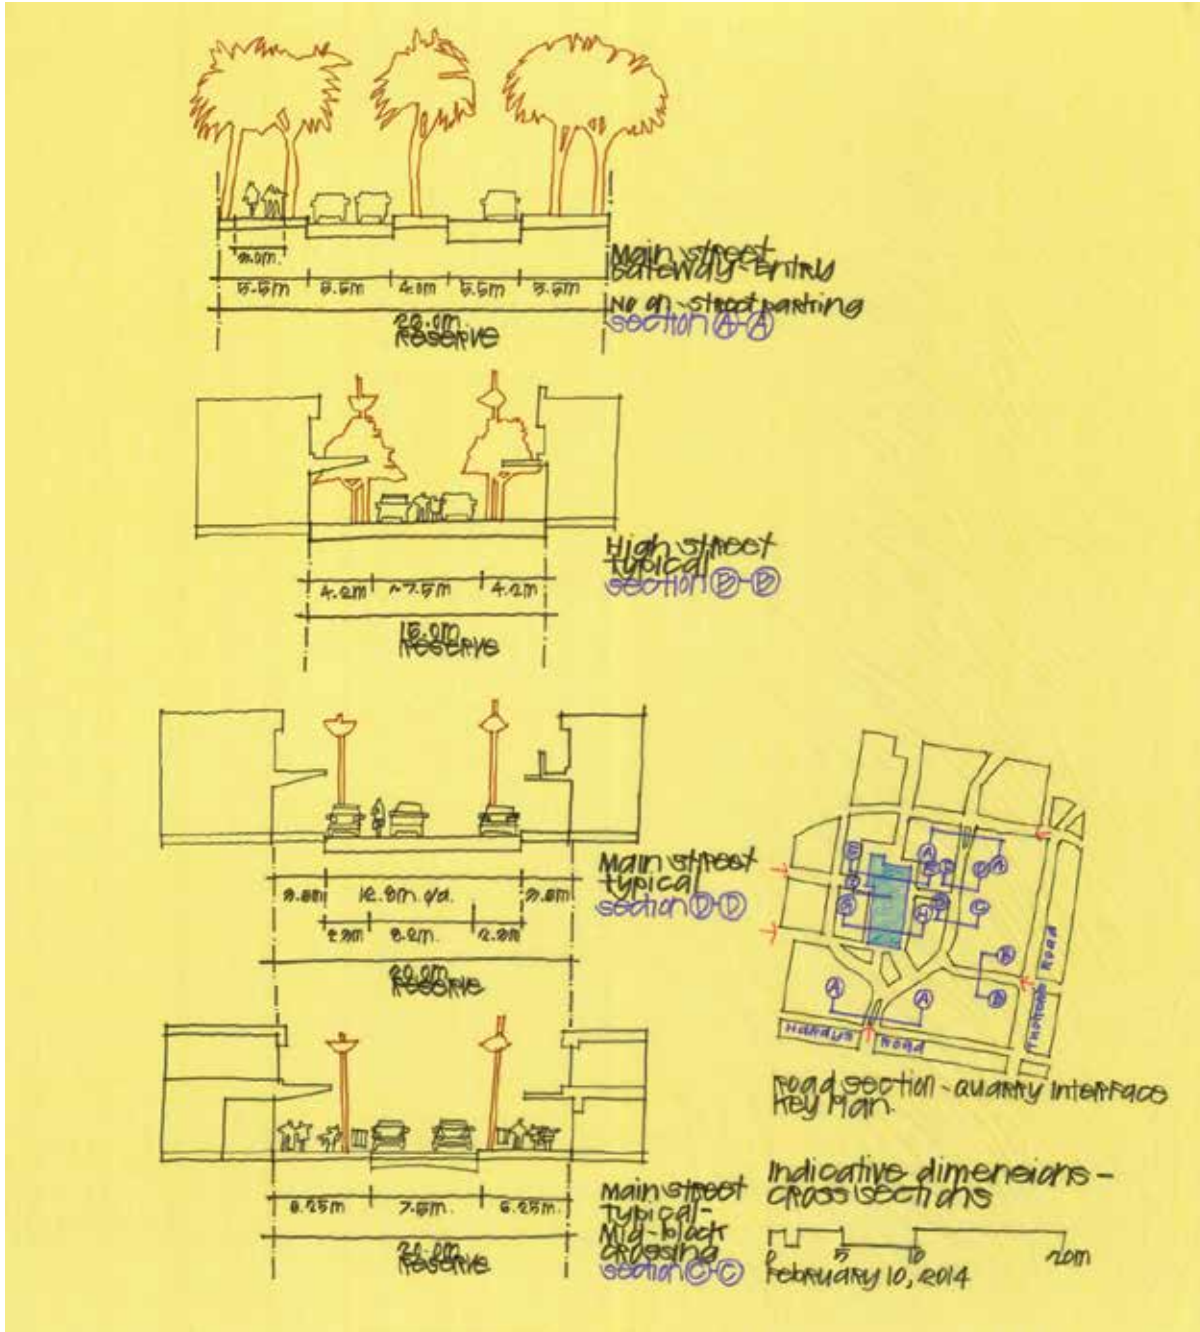 3.0m.
5.5m 5.5m 4.0m 5.5m 5.5m
RESERVE
Main street
Gateway-Entry
No on-street parking
section A-A
4.2m ~7.5m 4.2m
15.0m
RESERVE
High street
typical
section B-B
3.5m 12.8m 3.5m
2.3m 8.2m. 2.3m
20.0m
RESERVE
Main street
typical
section D-D
6.25m 7.5m. 6.25m
20.0m
RESERVE
Main street
typical-
Mid-block
crossing
section C-C
A
A
C
B
B
A A
Road
Road
Road section - quarry interface
Key plan.
Indicative dimensions -
cross sections
0 5 10 20m
February 10, 2014